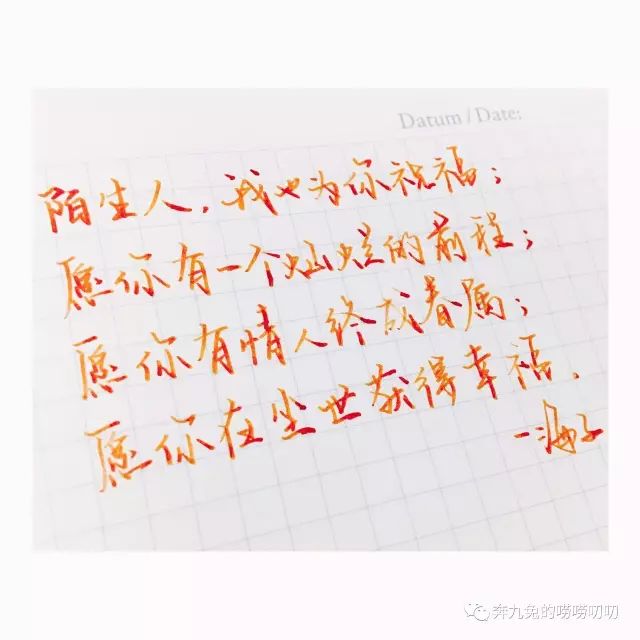 Datum / Date:
陌生人，我也为你祝福；
愿你有一个灿烂的前程；
愿你有情人终成眷属；
愿你在尘世获得幸福.
一海子
奔九兔的唠唠叨叨